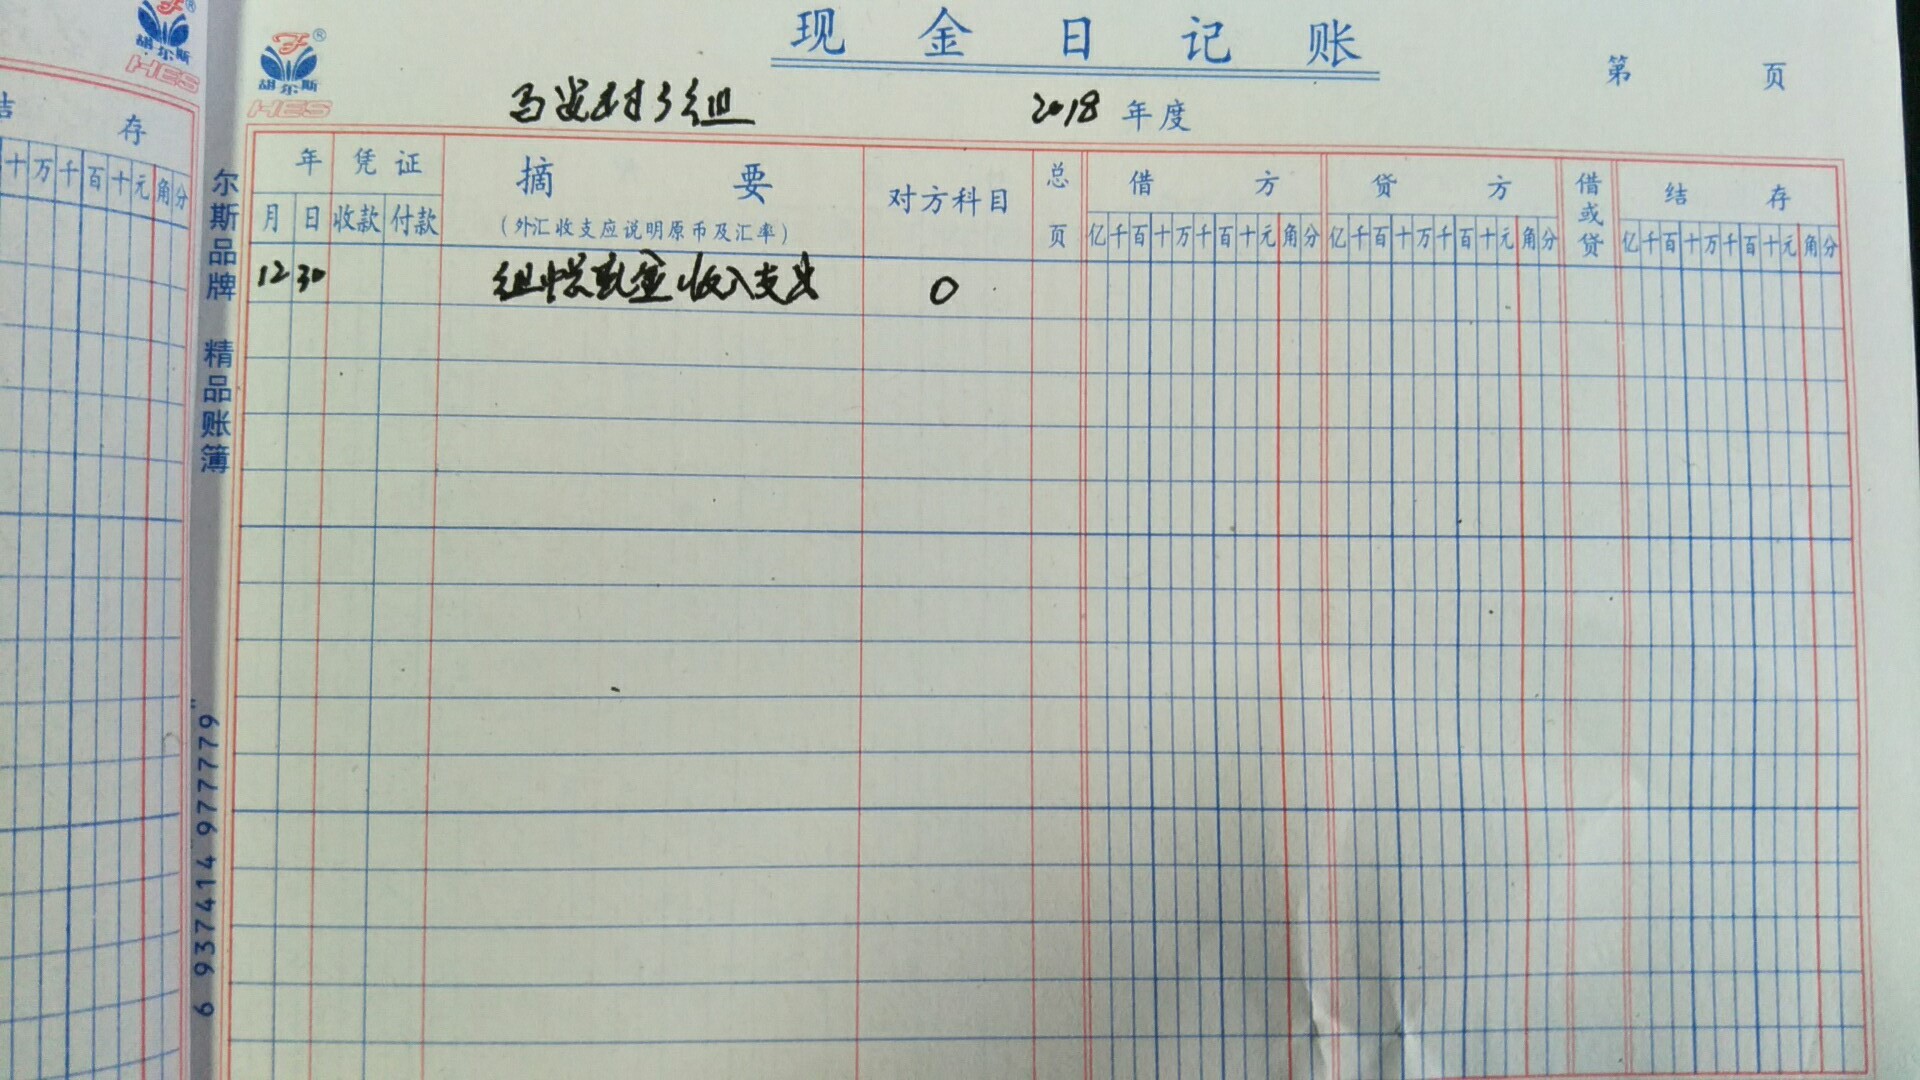 现金日记账
胡尔斯
HES
第 页
胡尔斯
HES
组
2018 年度
结 存
十万千百十元角分
年 凭证 摘要 对方科目 总页 借方 贷方 借或贷 结存
月 日 收款 付款 (外汇收支应说明原币及汇率) 亿千百十万千百十元角分 亿千百十万千百十元角分 亿千百十万千百十元角分
12 30 收入支出 0
尔斯品牌 精品账簿
6 937414 977779